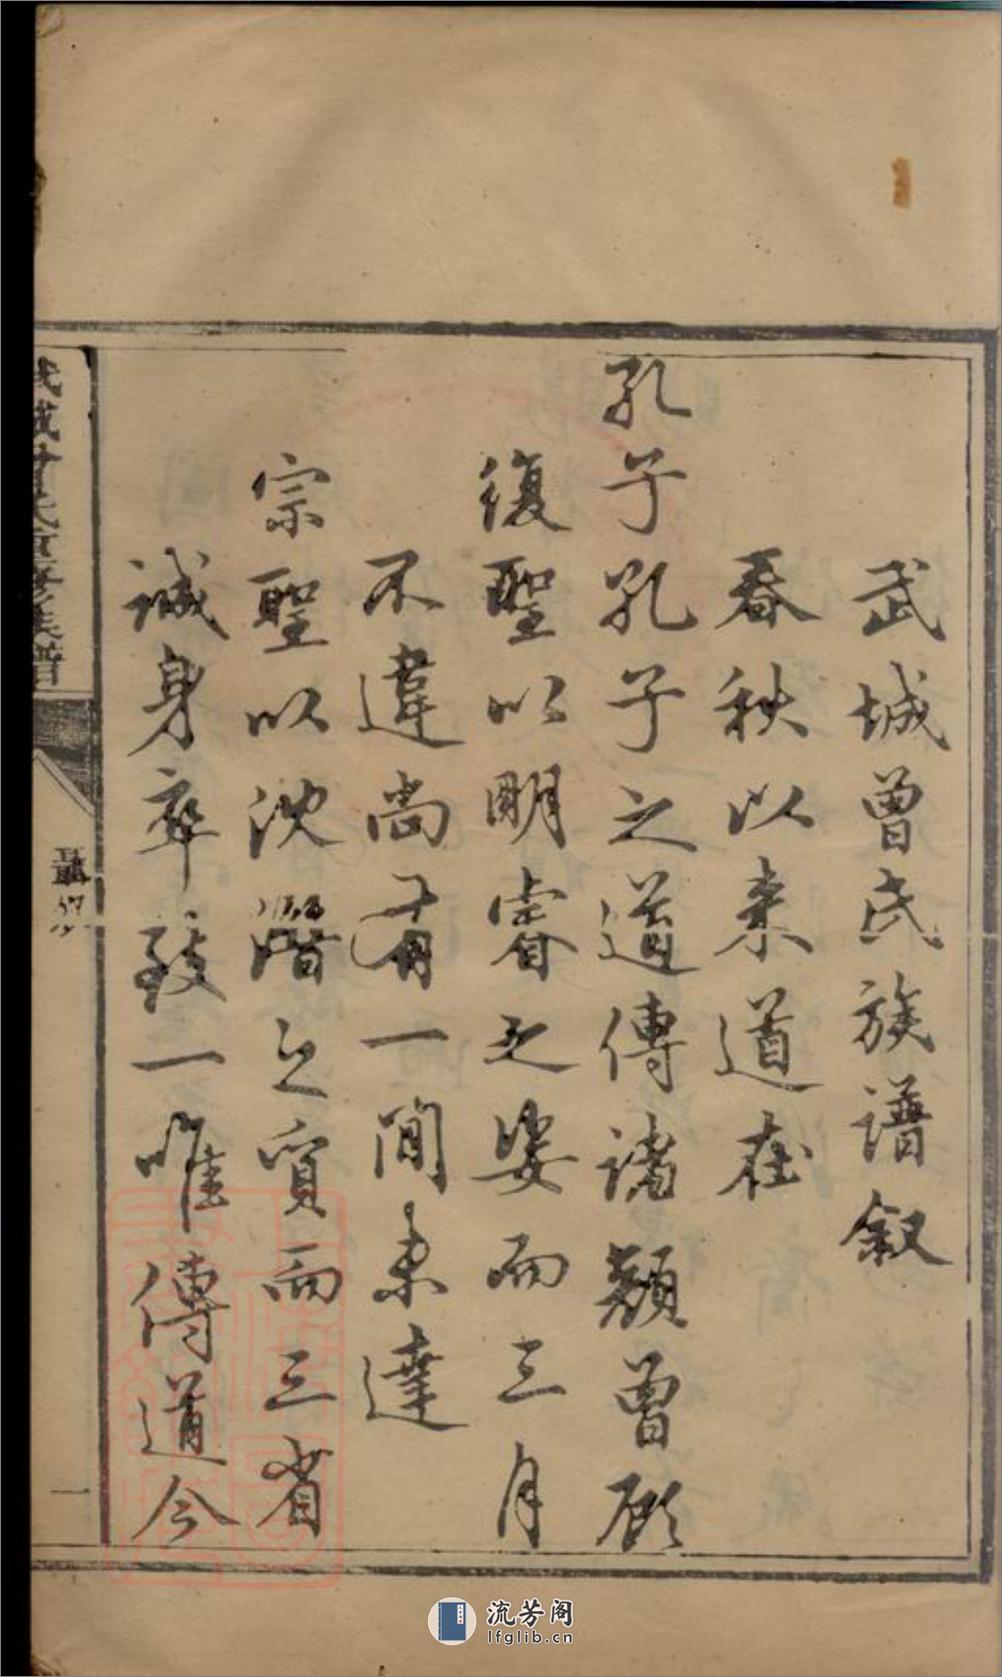 武城曾氏族譜叙
春秋以来道在
孔子孔子之道傳諸顔曾顧
復聖以明睿之姿而三月
不違尚有一間未達
宗聖以沈潛之質而三省
誠身卒致一唯傳道今
武城曾氏重修族譜
一
流芳阁
lfglib.cn